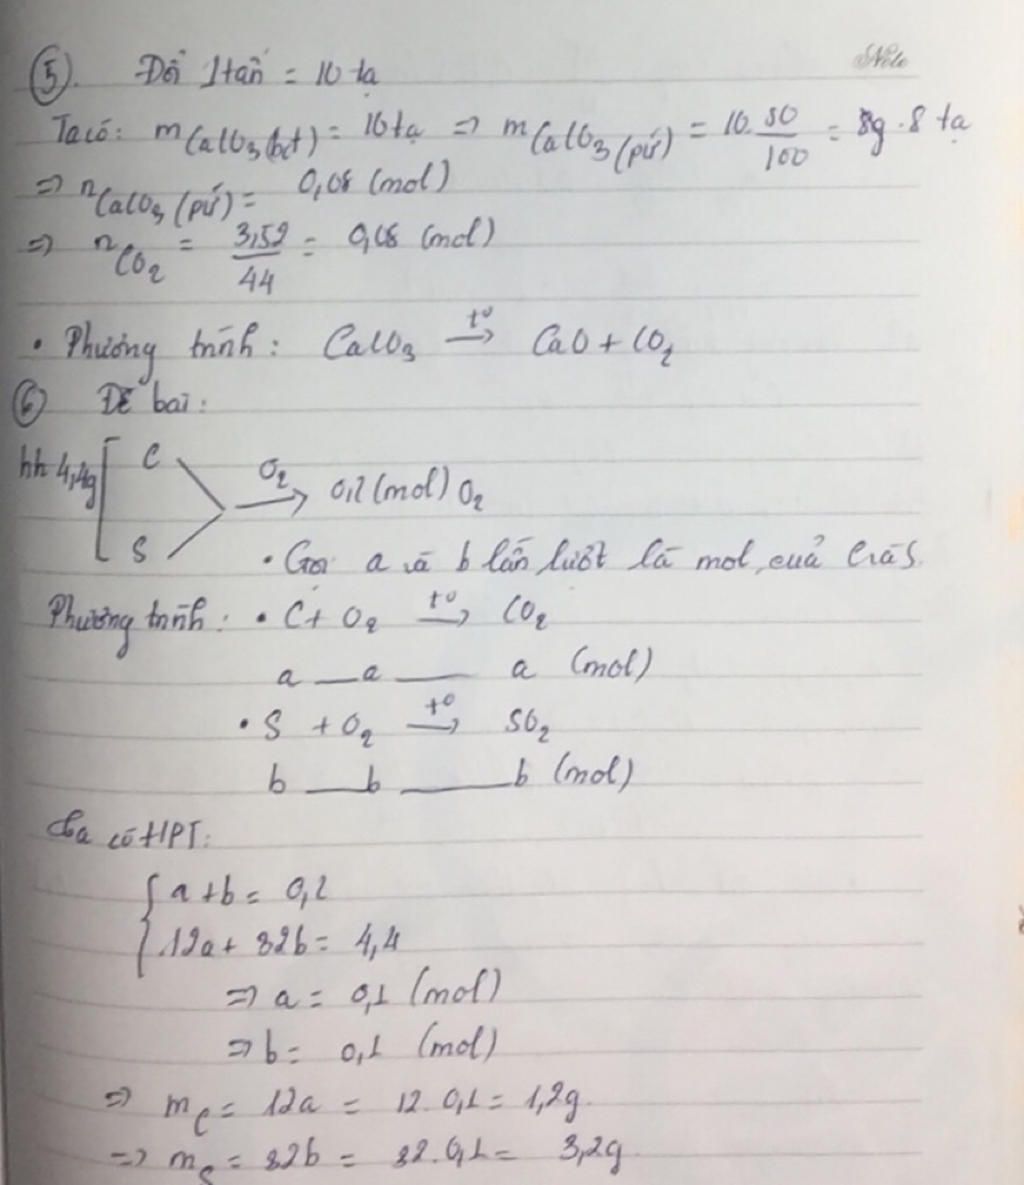 Note
⑤. Đổi 1 tấn = 10 tạ
Ta có: mCaCO3(bđ) = 10 tạ ⇒ mCaCO3(pứ) = 10.80/100 = 8 tạ
⇒ nCaCO3(pứ) = 0,08 (mol)
⇒ nCO2 = 3,52/44 = 0,08 (mol)
• Phương trình: CaCO3 t°→ CaO + CO2
⑥ Đề bài:
hh 4,4g [ C S O2→ 0,2 (mol) O2
• Gọi a và b lần lượt là mol của C và S.
Phương trình: • C + O2 t°→ CO2
a — a — a (mol)
• S + O2 t°→ SO2
b — b — b (mol)
Ta có HPT:
{ a + b = 0,2
12a + 32b = 4,4
⇒ a = 0,1 (mol)
⇒ b = 0,1 (mol)
⇒ mC = 12a = 12.0,1 = 1,2g.
⇒ mS = 32b = 32.0,1 = 3,2g